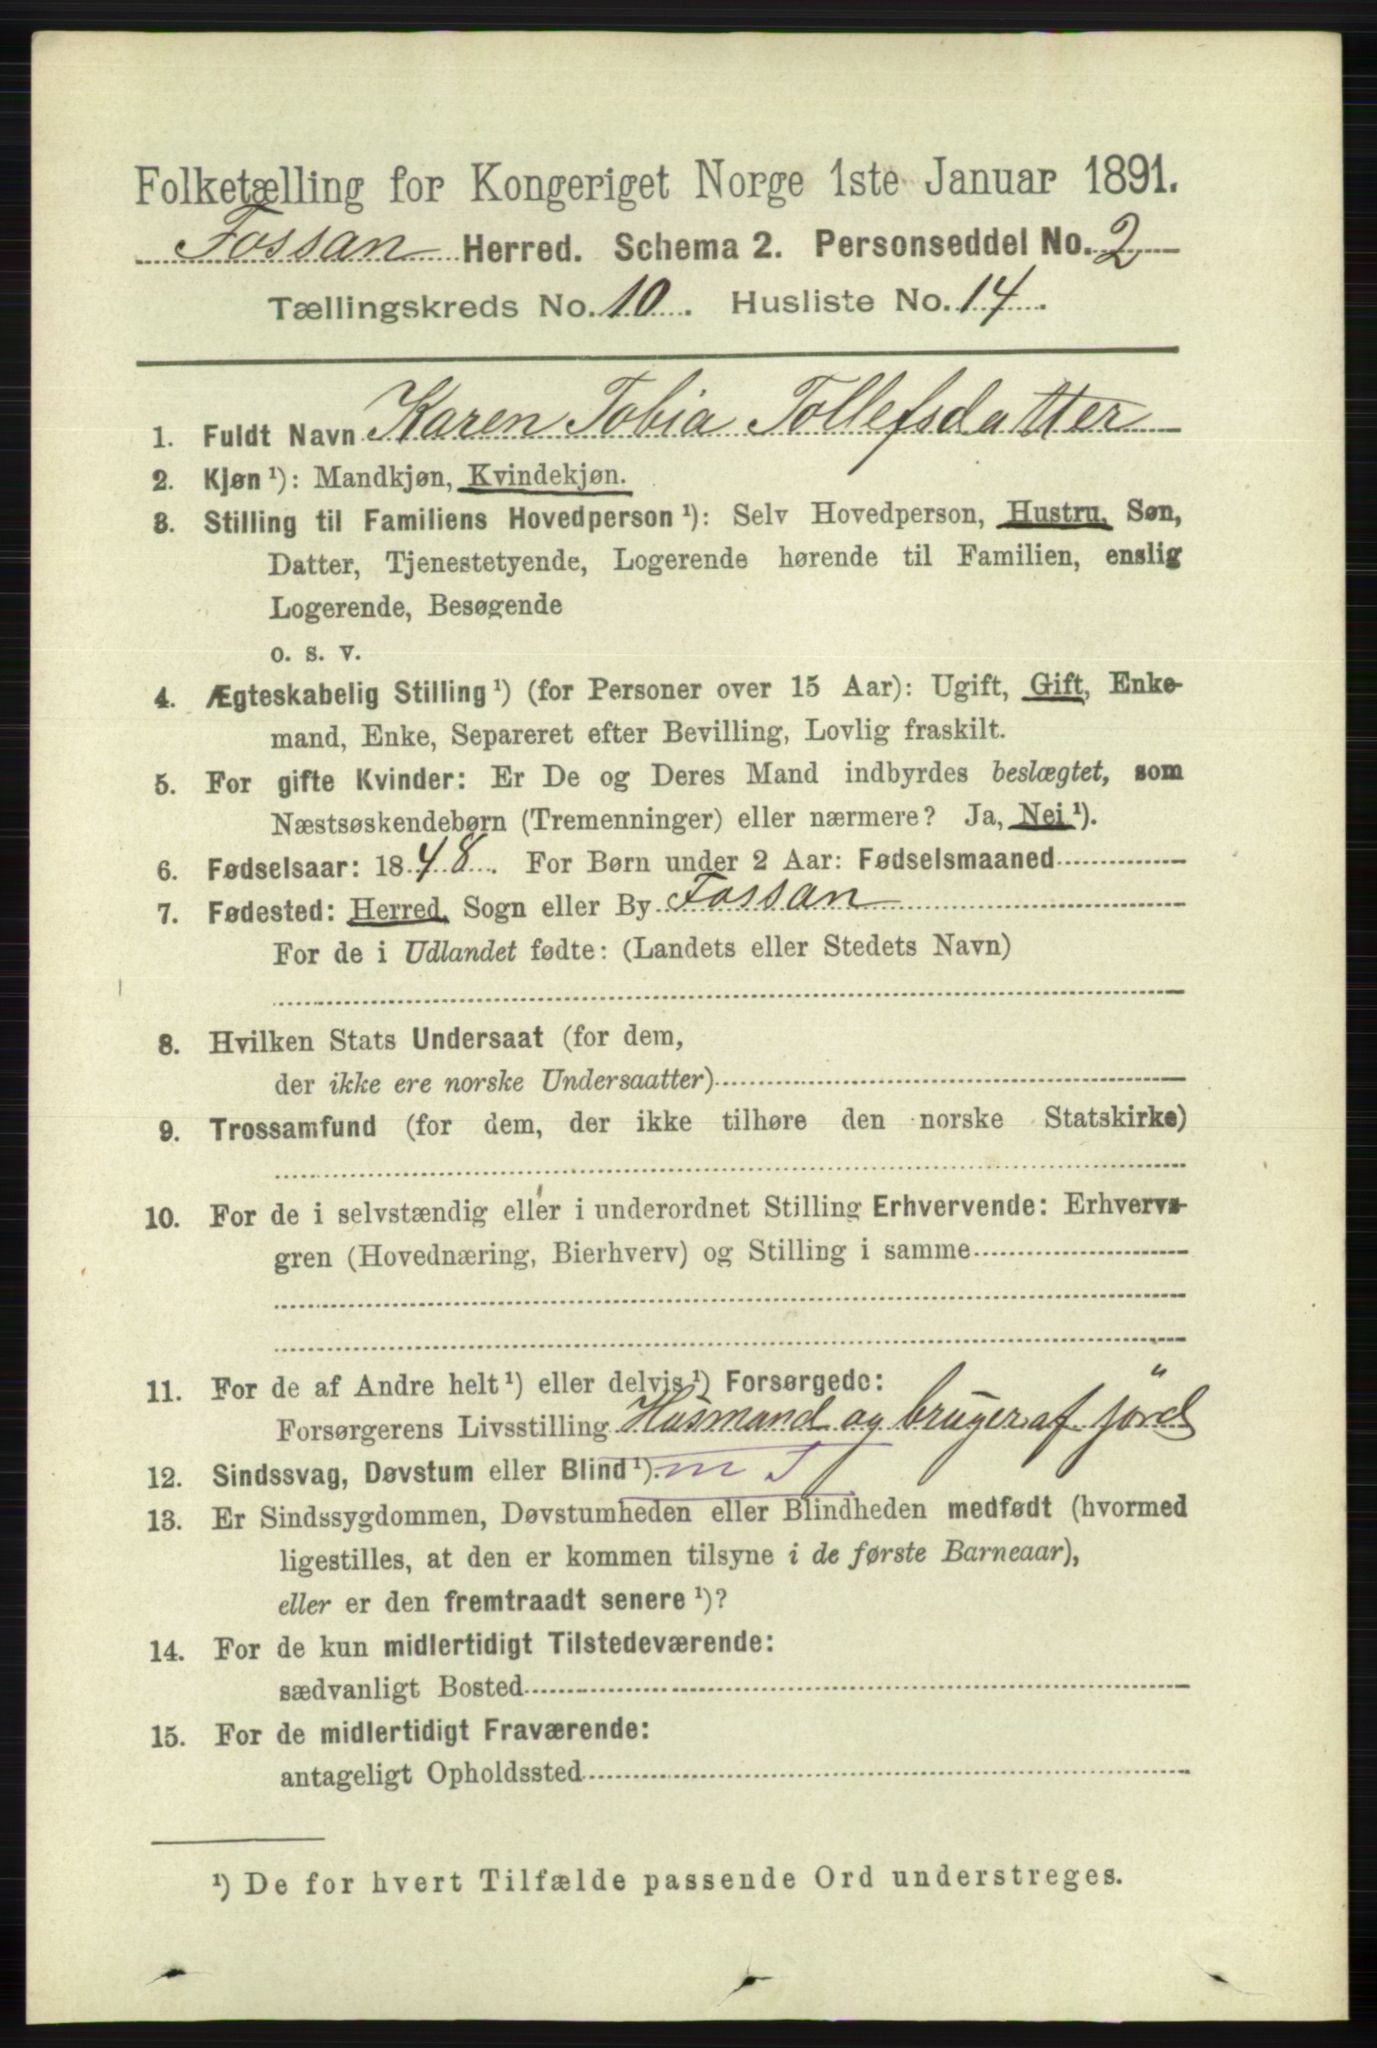 Folketælling for Kongeriget Norge 1ste Januar 1891.
Fossan Herred. Schema 2. Personseddel No. 2
Tællingskreds No. 10. Husliste No. 14.
1. Fuldt Navn Karen Tobia Tollefsdatter
2. Kjøn ¹): Mandkjøn, Kvindekjøn.
3. Stilling til Familiens Hovedperson ¹): Selv Hovedperson, Hustru, Søn,
Datter, Tjenestetyende, Logerende hørende til Familien, enslig
Logerende, Besøgende
o. s. v.
4. Ægteskabelig Stilling ¹) (for Personer over 15 Aar): Ugift, Gift, Enke-
mand, Enke, Separeret efter Bevilling, Lovlig fraskilt.
5. For gifte Kvinder: Er De og Deres Mand indbyrdes beslægtet, som
Næstsøskendebørn (Tremenninger) eller nærmere? Ja, Nei ¹).
6. Fødselsaar: 1848. For Børn under 2 Aar: Fødselsmaaned
7. Fødested: Herred, Sogn eller By Fossan
For de i Udlandet fødte: (Landets eller Stedets Navn)
8. Hvilken Stats Undersaat (for dem,
der ikke ere norske Undersaatter)
9. Trossamfund (for dem, der ikke tilhøre den norske Statskirke)
10. For de i selvstændig eller i underordnet Stilling Erhvervende: Erhvervs-
gren (Hovednæring, Bierhverv) og Stilling i samme
11. For de af Andre helt ¹) eller delvis ¹) Forsørgede:
Forsørgerens Livsstilling Husmand og bruger af jörd
12. Sindssvag, Døvstum eller Blind ¹). m J
13. Er Sindssygdommen, Døvstumheden eller Blindheden medfødt (hvormed
ligestilles, at den er kommen tilsyne i de første Barneaar),
eller er den fremtraadt senere ¹)?
14. For de kun midlertidigt Tilstedeværende:
sædvanligt Bosted
15. For de midlertidigt Fraværende:
antageligt Opholdssted
¹) De for hvert Tilfælde passende Ord understreges.